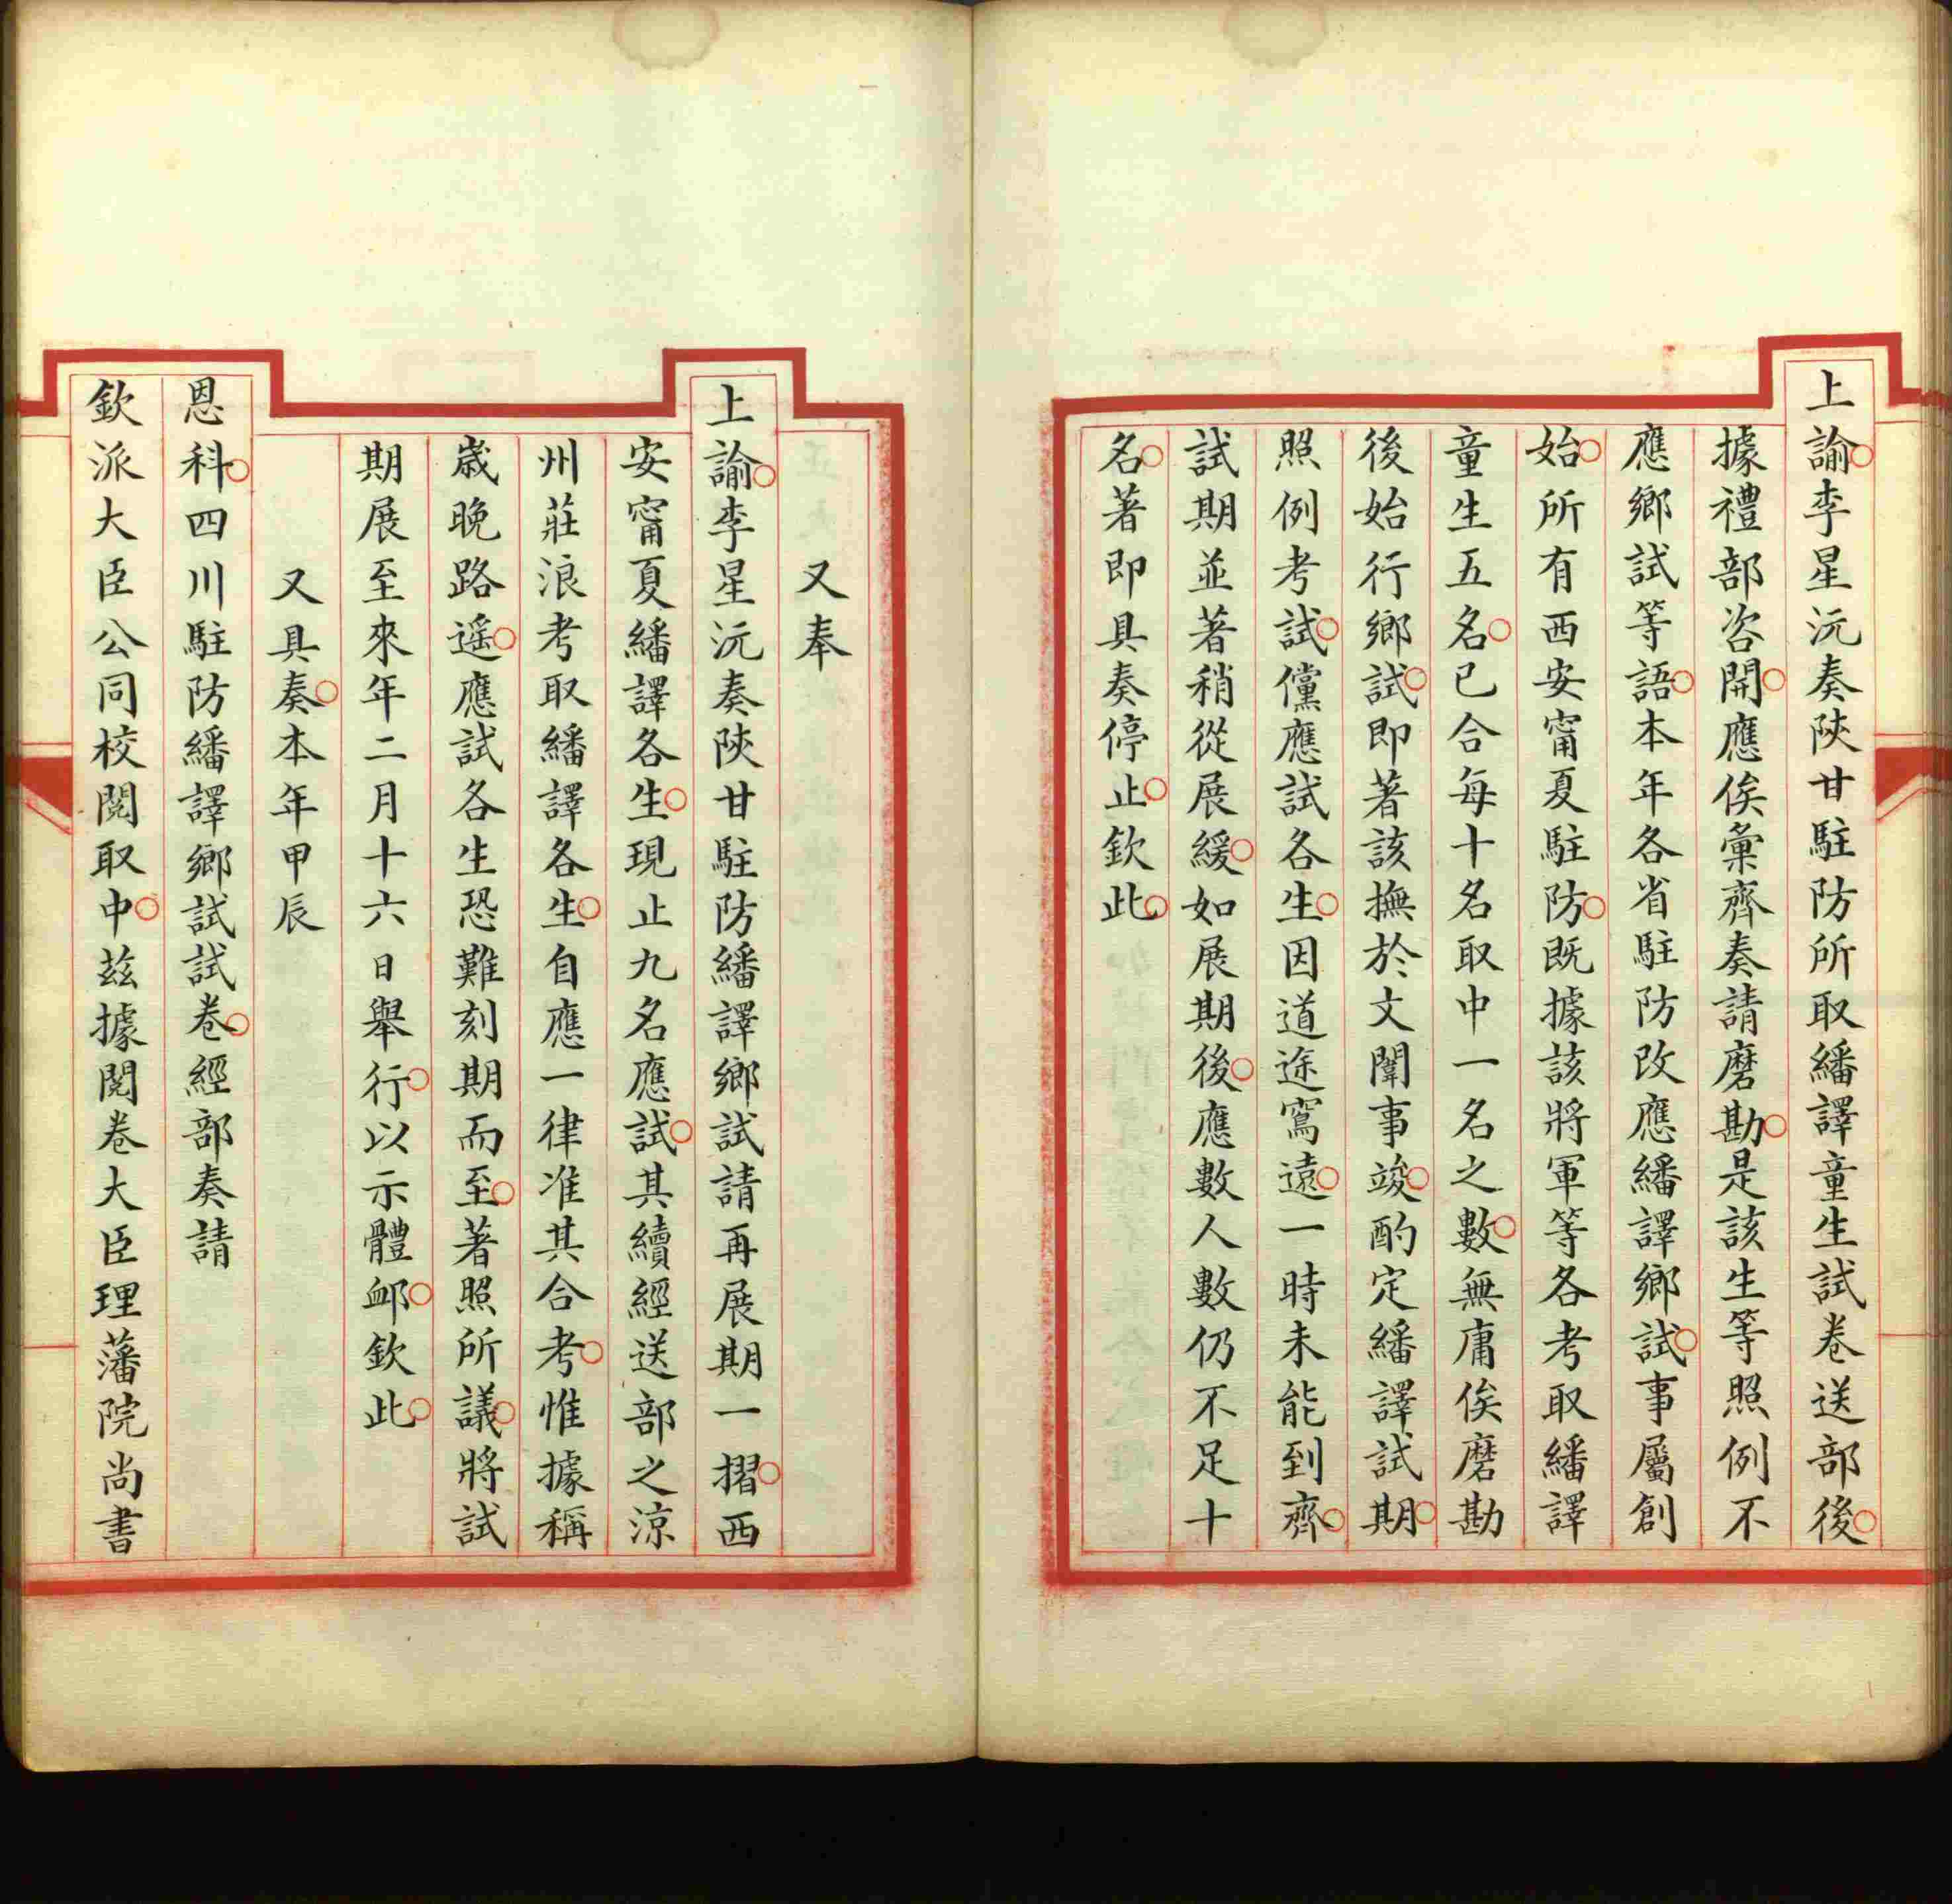 上諭李星沅奏陝甘駐防所取繙譯童生試卷送部後
據禮部咨開應俟彙齊奏請磨勘是該生等照例不
應鄉試等語本年各省駐防改應繙譯鄉試事屬創
始所有西安甯夏駐防既據該將軍等各考取繙譯
童生五名已合每十名取中一名之數無庸俟磨勘
後始行鄉試即著該撫於文闈事竣酌定繙譯試期
照例考試儻應試各生因道途窵遠一時未能到齊
試期並著稍從展緩如展期後應數人數仍不足十
名著即具奏停止欽此
又奉
上諭李星沅奏陝甘駐防繙譯鄉試請再展期一摺西
安甯夏繙譯各生現止九名應試其續經送部之涼
州莊浪考取繙譯各生自應一律准其合考惟據稱
歲晚路遥應試各生恐難刻期而至著照所議將試
期展至來年二月十六日舉行以示體衈欽此
又具奏本年甲辰
恩科四川駐防繙譯鄉試試卷經部奏請
欽派大臣公同校閱取中茲據閱卷大臣理藩院尚書